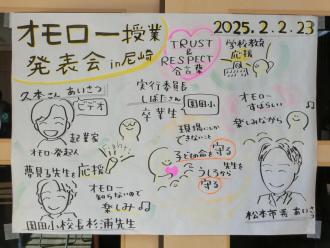 オモロー授業
発表会 in 尼崎
2025.2.2.23
TRUST
&
RESPECT
合言葉
学校教育
応援
久本さん あいさつ
ビデオ
実行委員長
しばたさん
園田小
卒業生
起業家
オモロー発起人
オモロー
すばらしい
楽しみながら
現場にしか
できないこと
夢見る先生を応援
子どもの命を守る
先生を
うしろから
守る
オモロー
知らないので
楽しみ
園田小校長杉浦先生
松本市長 あいさつ